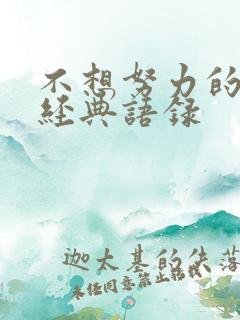 不想努力的
經典語錄
迦太基的失落
未經同意禁止轉載